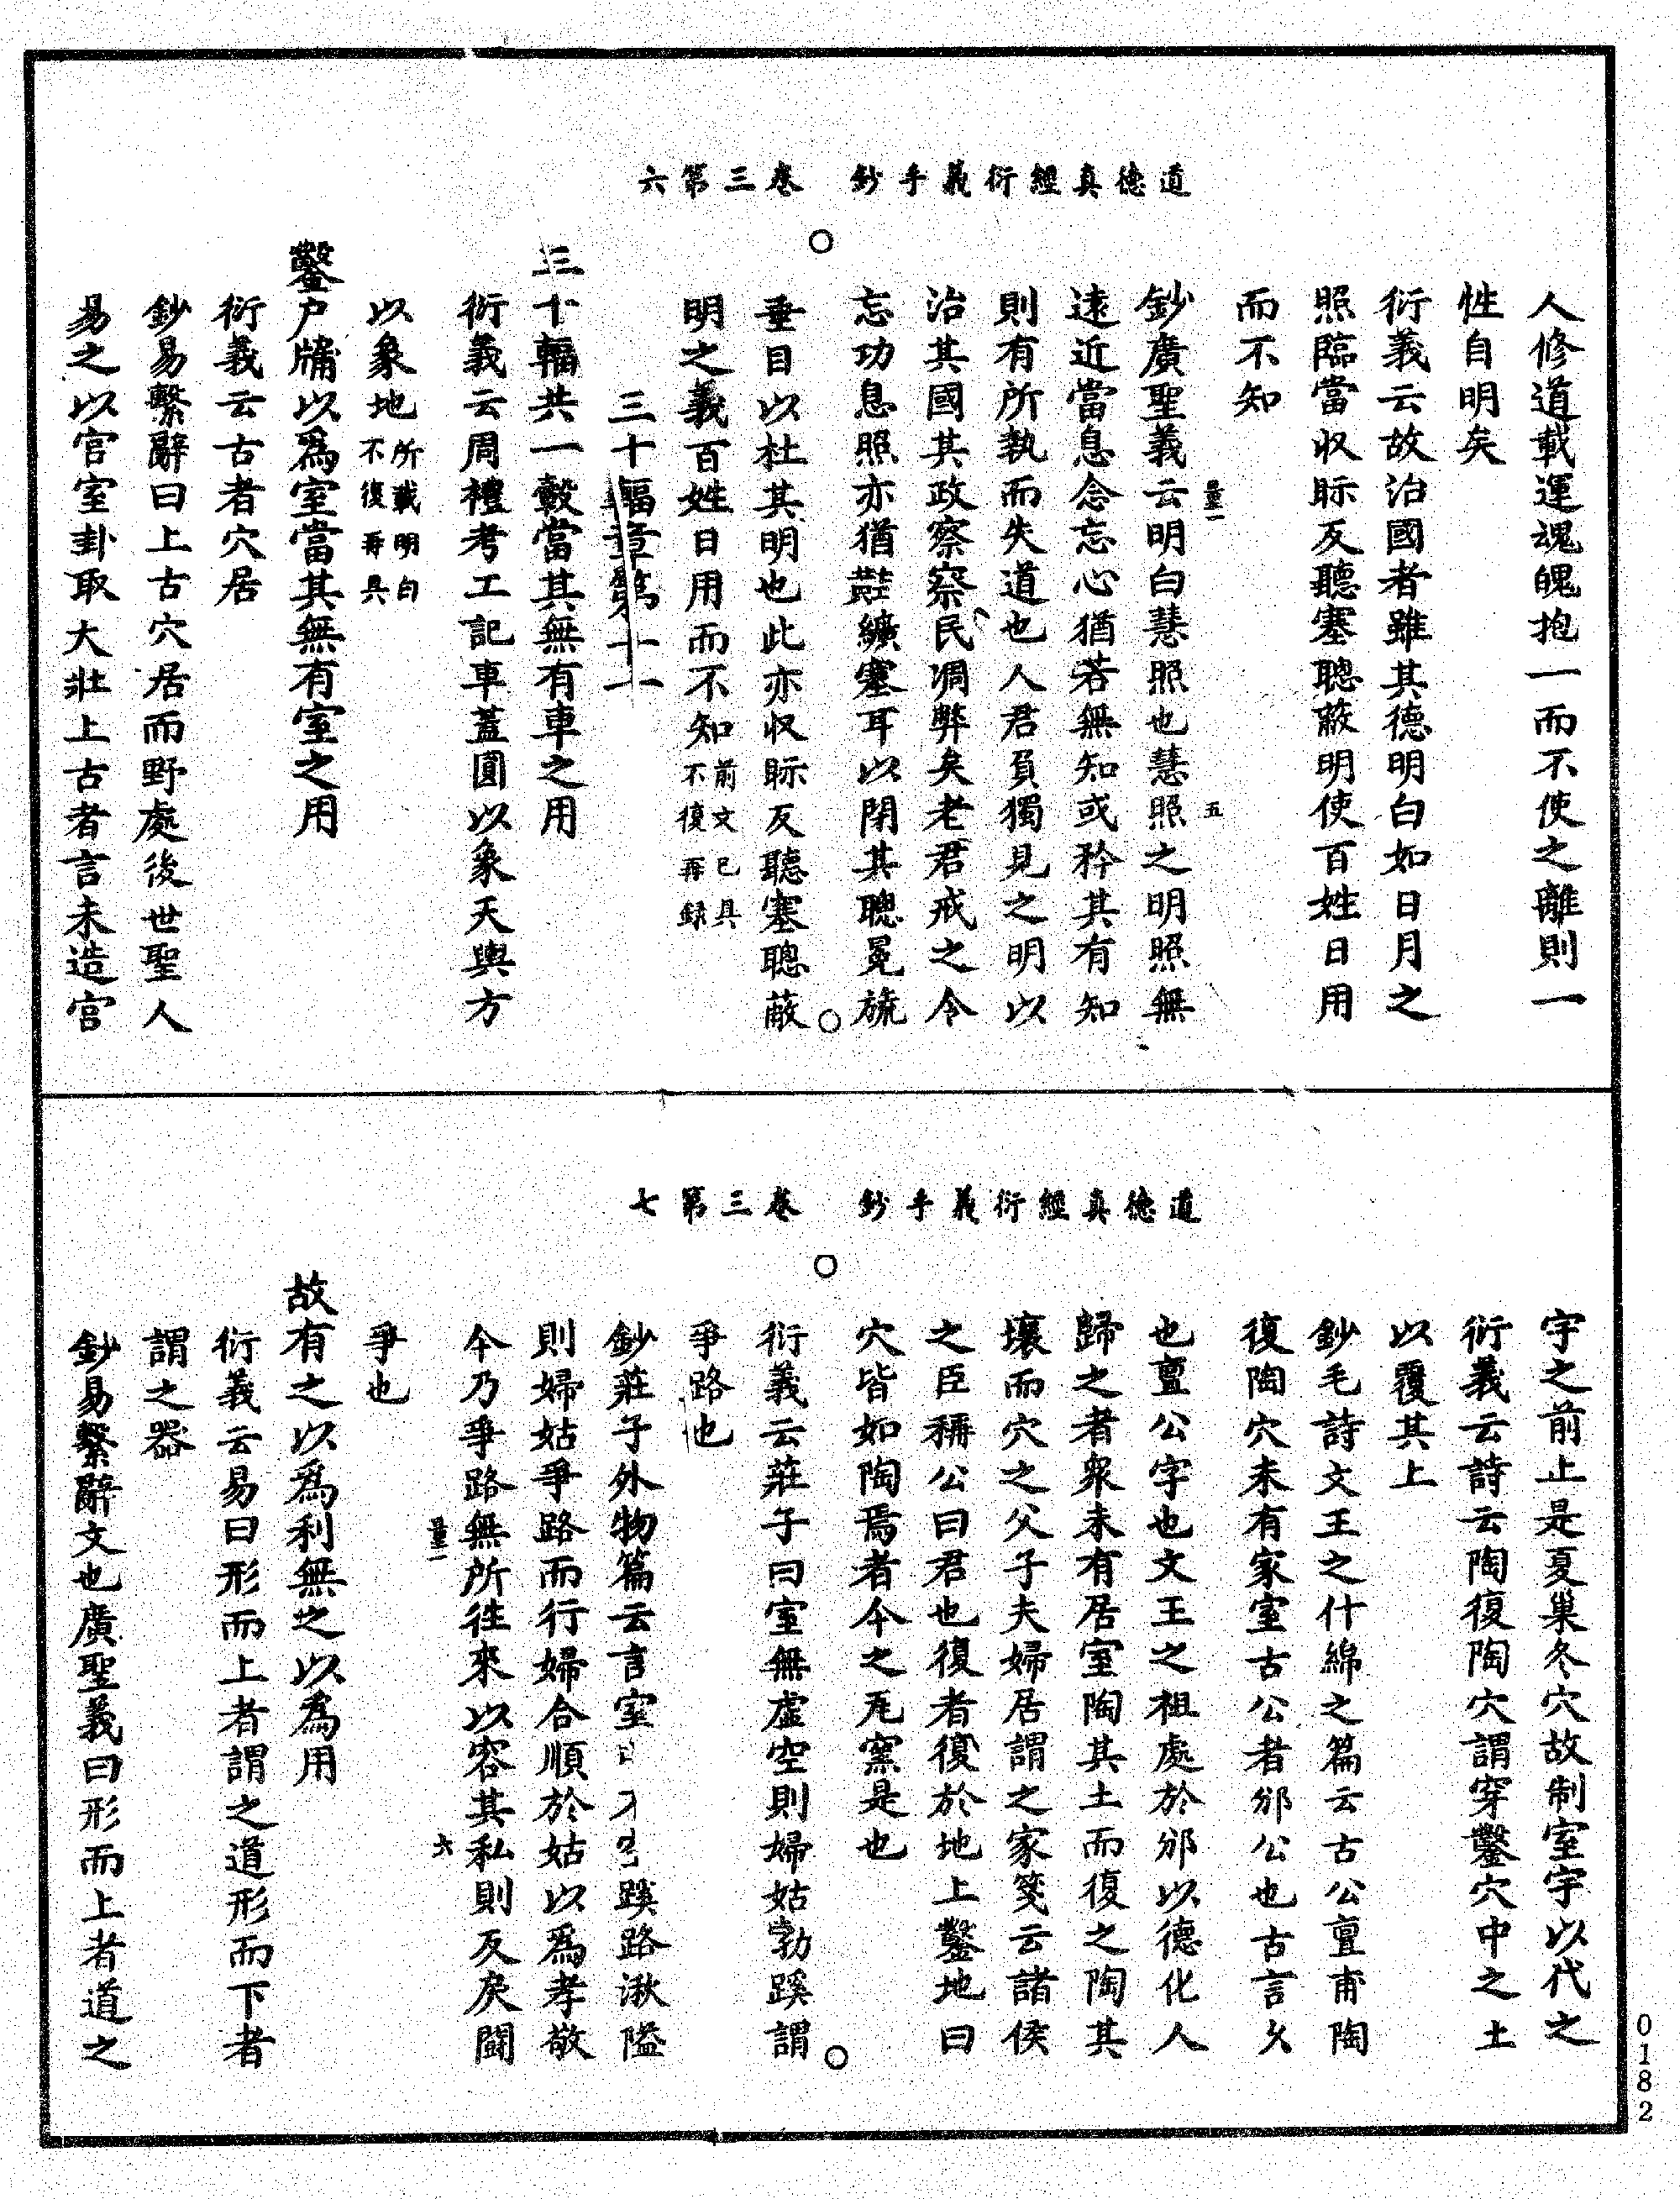 道德真經衍義手鈔　卷三第六
人修道載運魂魄抱一而不使之離則一
性自明矣
衍義云故治國者雖其德明白如日月之
照臨當収眎反聽塞聰蔽明使百姓日用
而不知
鈔廣聖義云明白慧照也慧照之明照無
遠近當息念忘心猶若無知或矜其有知
則有所執而失道也人君負獨見之明以
治其國其政察察民凋弊矣老君戒之令
忘功息照亦猶黈纊塞耳以閉其聰冕旒
垂目以杜其明也此亦収眎反聽塞聰蔽
明之義百姓日用而不知前文已具不復再録
三十輻章第十一
三十輻共一轂當其無有車之用
衍義云周禮考工記車蓋圓以象天輿方
以象地所載明白不復再具
鑿戶牖以爲室當其無有室之用
衍義云古者穴居
鈔易繫辭曰上古穴居而野處後世聖人
易之以宮室卦取大壯上古者言未造宮
道德真經衍義手鈔　卷三第七
宇之前止是夏巢冬穴故制室宇以代之
衍義云詩云陶復陶穴謂穿鑿穴中之土
以覆其上
鈔毛詩文王之什綿之篇云古公亶甫陶
復陶穴未有家室古公者邠公也古言久
也亶公字也文王之祖處於邠以德化人
歸之者衆未有居室陶其土而復之陶其
壤而穴之父子夫婦居謂之家箋云諸侯
之臣稱公曰君也復者復於地上鑿地曰
穴皆如陶焉者今之瓦窯是也
衍義云莊子曰室無虛空則婦姑勃蹊謂
爭路也
鈔莊子外物篇云言室蹊路湫隘
則婦姑爭路而行婦合順於姑以爲孝敬
今乃爭路無所往來以容其私則反戾鬪
爭也
故有之以爲利無之以爲用
衍義云易曰形而上者謂之道形而下者
謂之器
鈔易繫辭文也廣聖義曰形而上者道之
五
六
0182